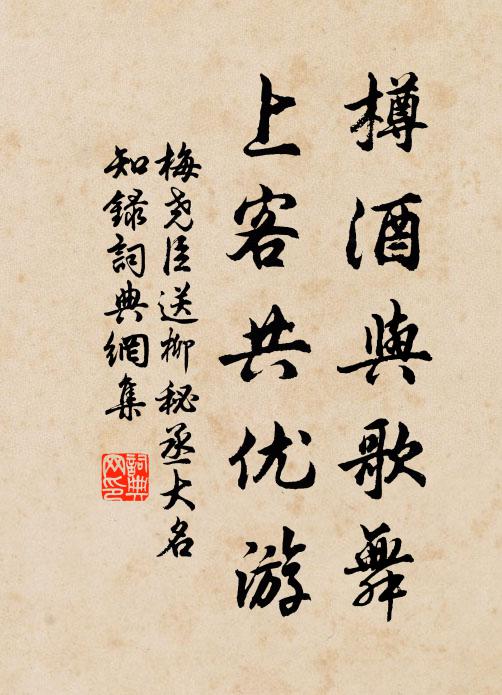 樽酒與歌舞
上客共优游
梅尧臣送柳秘丞大名
知錄詞典網集
詞典
网印